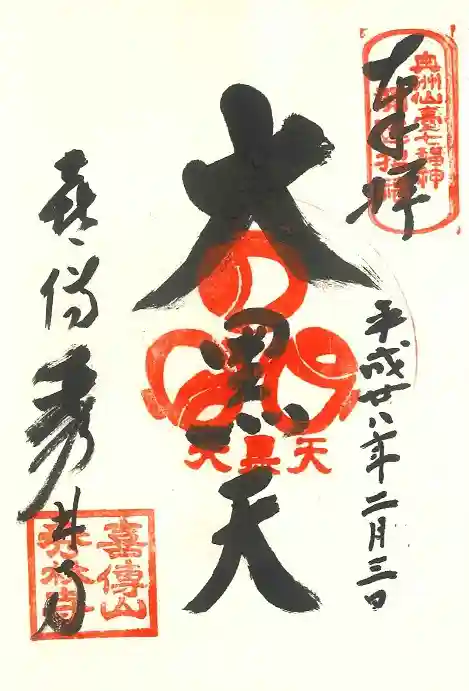 奉拝
奥州仙臺七福神
平成廿八年二月三日
大黒天
大黒天
秀林寺
嘉傳山
秀林寺